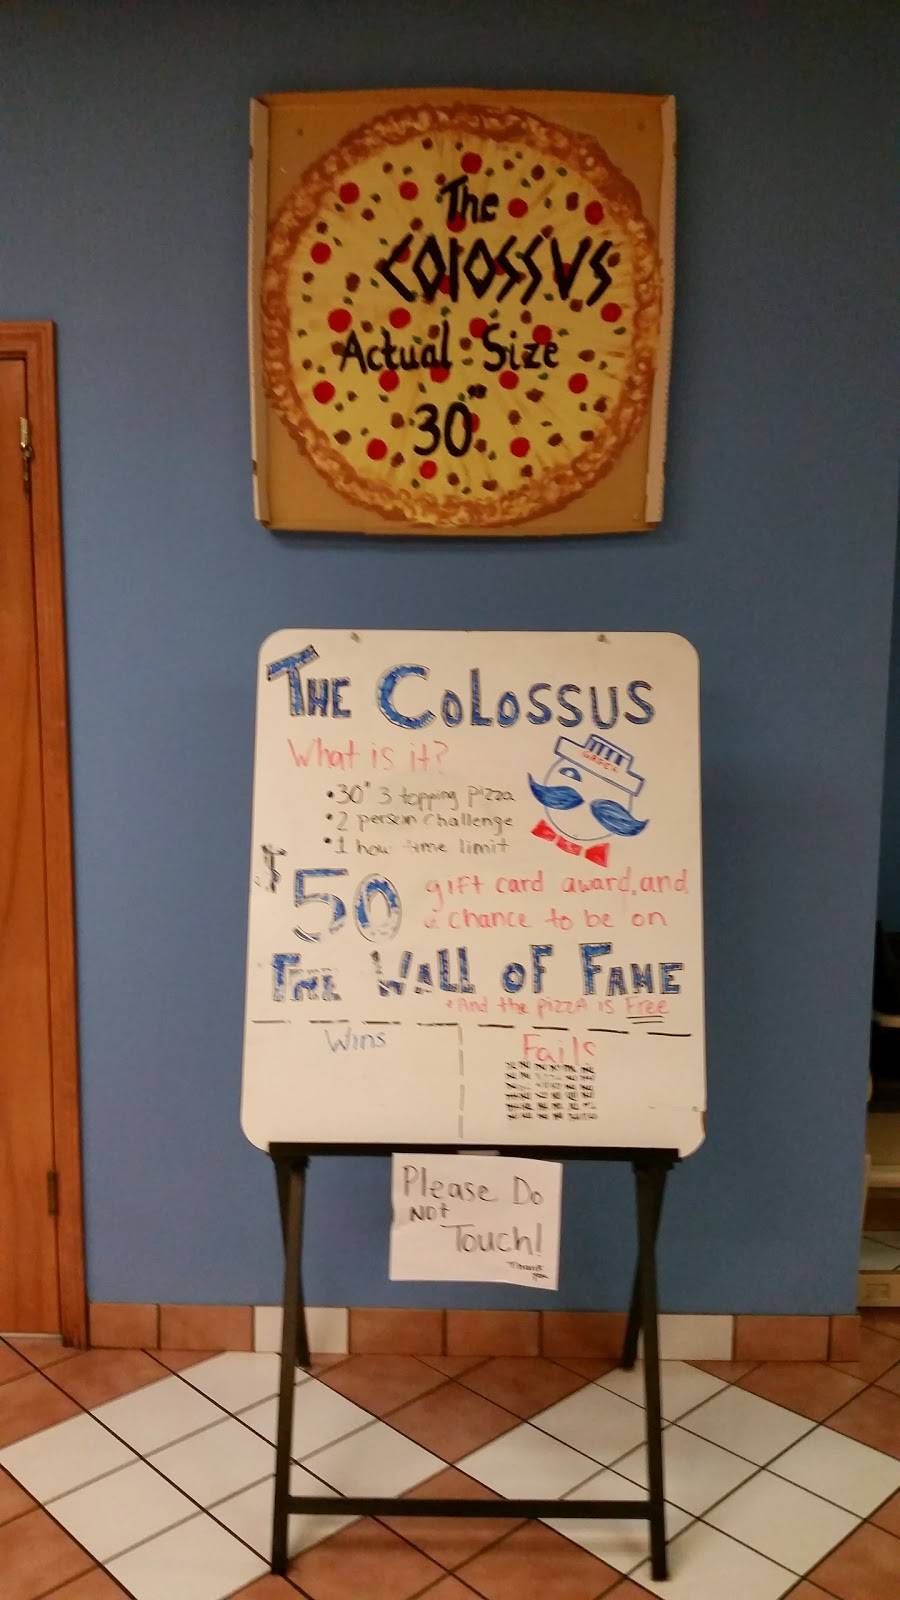 The
COLOSSUS
Actual Size
30"
THE COLOSSUS
What is it?
GREEK
•30" 3 topping pizza
•2 person challenge
•1 hour time limit
$50 gift card award, and
a chance to be on
THE WALL OF FAME
*And the pizza is Free
Wins
Fails
Please Do
Not
Touch!
Thank
you